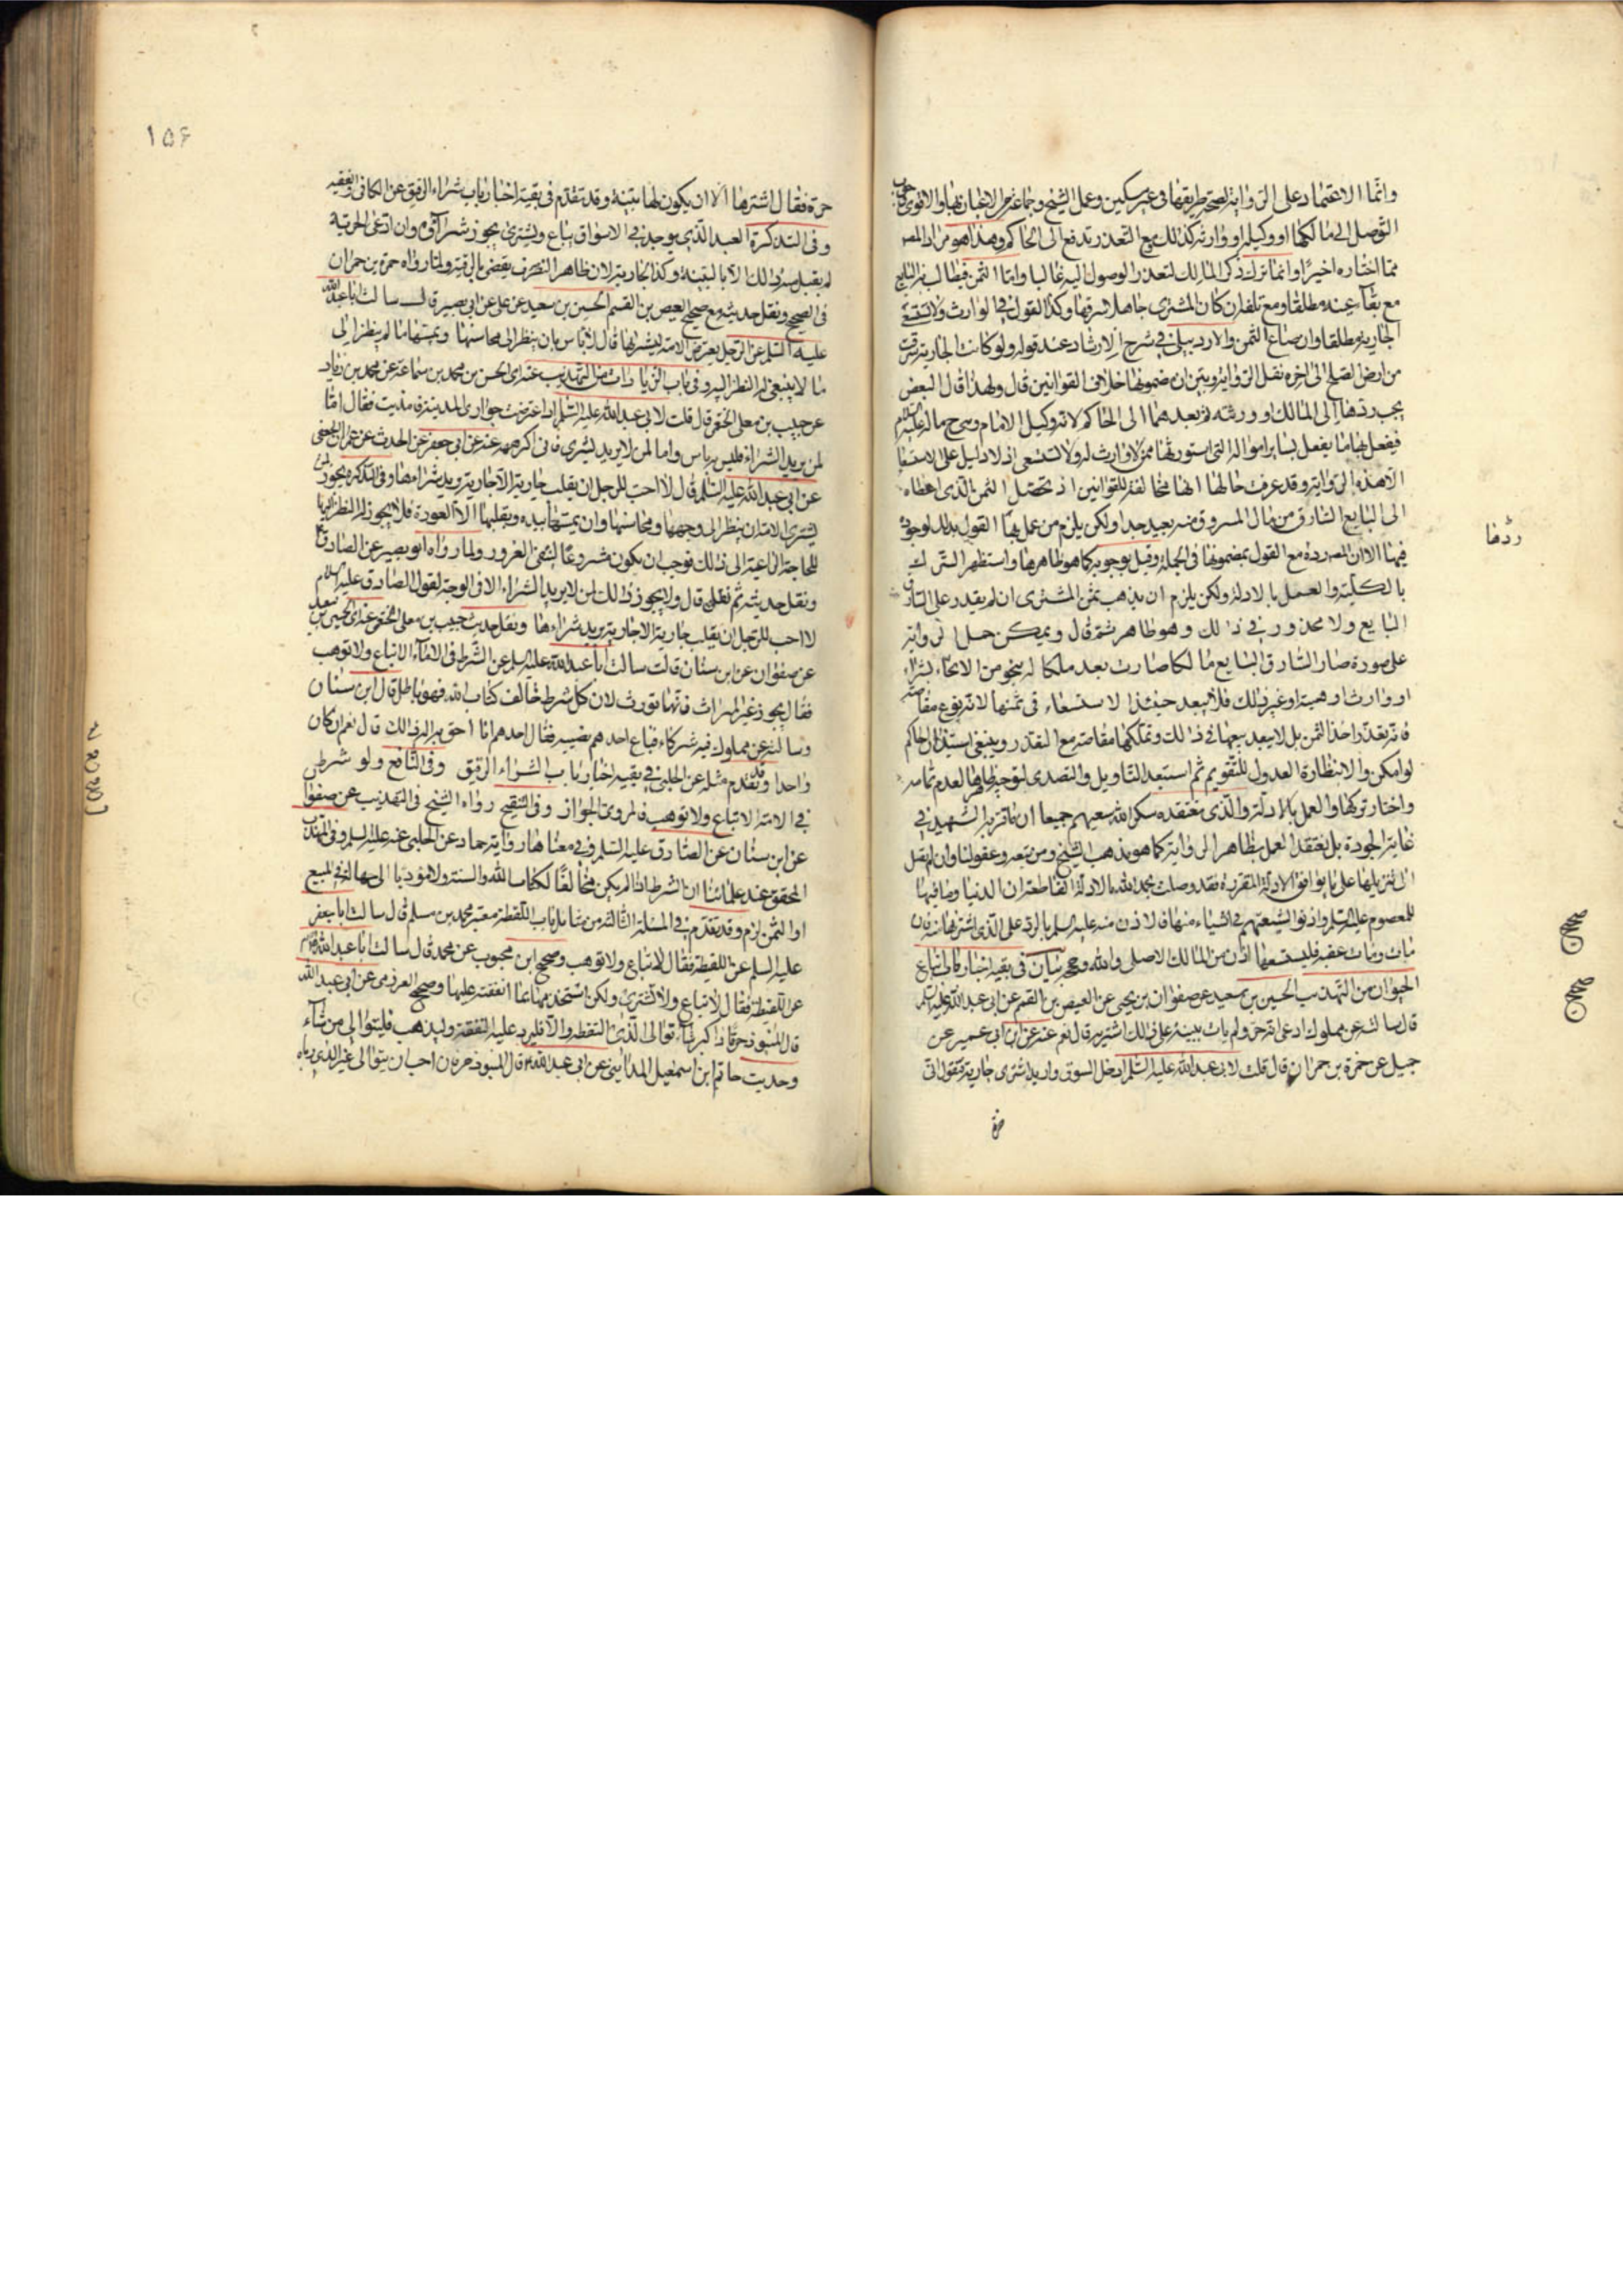 وانما الاعتماد على الرواية لصحة طريقها في غير مسكين وعمل الشيخ وجماعة من الاعيان بها والاقوى
التوصل الى مالكها او وكيله او وارثه كذلك مع التعذر تدفع الى الحاكم وهذا هو مراد المصـ
مما اختاره اخيرا وانما ترك ذكر المالك لتعذر الوصول اليه غالبا واما الثمن فيطالب به البايع
مع بقاء عينه مطلقا ومع تلفه ان كان المشتري جاهلا بسرقتها وكذا القول في الوارث ولا تستسعى
الجارية مطلقا وان ضاع الثمن والاردبيلي في شرح الارشاد عند قوله ولو كانت الجارية سرقت
من ارض الصلح الى اخره نقل الرواية وبين ان مضمونها خلاف القوانين قال ولهذا قال البعض
يجب ردها الى المالك او ورثته ثم بعدهما الى الحاكم لانه وكيل الامام وسـح ماله عليه السلام
فيفعل بها ما يفعل بساير امواله التي استورثها ممن لا وارث له ولا تستسعى اذ لا دليل على الاستسعا
الا هذه الرواية وقد عرف حالها انها مخالفة للقوانين اذ تحصيل الثمن الذي اعطاه
الى البايع السارق من مال المسروق منه بعيد جدا ولكن يلزم من عمل بها القول بذلك لوجوده
فيها الا ان المصـ رده مع القول بمضمونها في الجملة وقيل بوجوبه كما هو ظاهرها واستظهر الترك
بالكلية والعمل بالادلة ولكن يلزم ان يذهب ثمن المشتري ان لم يقدر على السارق
البايع ولا محذور في ذلك وهو ظاهر ثم قال ويمكن حمل الرواية
على صورة صار السارق البايع مالكا صارت بعد ملكا له بنحو من الانحاء بشراء
او وارث او هبة او غير ذلك فلا يبعد حينئذ الاستسعاء في ثمنها لانه يقع مقاصة
فانه تعدى واخذ الثمن بل لا يبعد بيعها في ذلك وتملكها مقاصة مع التعذر وينبغي استيذان الحاكم
لو امكن والا نظارة العدول للتقويم ثم استبعد التاويل والتصدي لتوجيه ظاهرها لعدم تمامه
واختار تركها والعمل بالادلة والذي نعتقده سكر الله سعيهم جميعا ان ما قربه الشهيد في
غاية الجودة بل نعتقد العمل بظاهر الرواية كما هو مذهب الشيخ ومن تبعه وعقولنا وان لم تصل
الى تنزيلها على ما يوافق الادلة المقررة فقد وصلت بحمد الله بالادلة القاطعة ان الدنيا وما فيها
للمعصوم عليه السلم واذنوا لشيعتهم في اشياء منها فالاذن منه عليه السلم بالرد على الذي اشتراها منه فان
مات ومات عقبه فليستسعها اذن من المالك الاصلي والله وحججه بيان في بقية اخبار كتاب ابتياع
الحيوان من التهذيب الحسين بن سعيد عن صفوان بن يحيى عن العيص بن القسم عن ابي عبد الله عليه السلم
قال سالته عن مملوك ادعى انه حر ولم يات ببينة على ذلك اشتريه قال نعم عنه عن ابن ابي عمير عن
جميل عن حمزة بن حمران قال قلت لابي عبد الله عليه السلم ادخل السوق واريد اشترى جارية فتقول اني
ردها
حرة
١٥٦
حرة فقال اشترها الا ان يكون لها بينة وقد تقدم في بقية اخبار باب شراء الرقيق عن الكافي والفقيه
وفي التذكرة العبد الذي يوجد في الاسواق يباع ويشترى يجوز شراؤه وان ادعى الحرية
لم يقبل منه ذلك الا بالبينة وكذا الجارية لان ظاهر التصرف يقضي بالرقية ولما رواه حمزة بن حمران
في الصحيح ونقل حديثه مع صحيح العيص بن القسم الحسين بن سعيد عن علي عن ابي بصير قال سالت ابا عبد الله
عليه السلم عن الرجل يعترض الامة ليشتريها قال لا باس بان ينظر الى محاسنها ويمسها ما لم ينظر الى
ما لا ينبغي له النظر اليه وفي باب الزيادات من التهذيب عنه اي الحسن بن محمد بن سماعة عن محمد بن زياد
عن حبيب بن معلى الخثعمي قال قلت لابي عبد الله عليه السلم اني اعترضت جواري المدينة فامذيت فقال اما
لمن يريد الشراء فليس به باس واما لمن لا يريد ليشتري فاني اكرهه عنه عن ابي جعفر عن الحدث عن عمران الجعفي
عن ابي عبد الله عليه السلم قال لا احب للرجل ان يقلب جارية الا جارية يريد شراءها وفي التذكرة يجوز لمن
يشتري الامة ان ينظر الى وجهها ومحاسنها وان يمسها بيده ويقلبها الا العورة فلا يجوز له النظر اليها
للحاجة الداعية الى ذلك فوجب ان يكون مشروعا لنفي الغرور ولما رواه ابو بصير عن الصادق
ونقل حديثه ثم نقل قال ولا يجوز ذلك لمن لا يريد الشراء الا في الوجه لقول الصادق عليه السلام
لا احب للرجل ان يقلب جارية الا جارية يريد شراءها ونقل حديث حبيب بن معلى الخثعمي عنه اي الحسين بن سعيد
عن صفوان عن ابن سنان قال سالت ابا عبد الله عليه السلم عن الشرط في الاماء الا تباع ولا توهب
فقال يجوز غير الميراث فانها تورث لان كل شرط خالف كتاب الله فهو باطل قال ابن سنان
وسالته عن مملوك فيه شركاء فباع احدهم نصيبه فقال احدهم انا احق به اله ذلك قال نعم ان كان
واحدا وقد تقدم مثله عن الحلبي في بقية اخبار باب الشراء الرقيق وفي النافع ولو شرط
في الامة الا تباع ولا توهب فالمروي الجواز وفي التنقيح رواه الشيخ في التهذيب عن صفوان
عن ابن سنان عن الصادق عليه السلم وفي معناها رواية حماد عن الحلبي عنه عليه السلم وفي المهذب
المحقق عند علمائنا ان الشرط اذا لم يكن مخالفا لكتاب الله والسنة ولا مؤديا الى جهالة في المبيع
او الثمن لزم وقد تقدم في المسئلة الثالثة من مسايل باب اللقطة معتبر محمد بن مسلم قال سالت ابا جعفر
عليه السلم عن اللقطة فقال لا تباع ولا توهب وصحيح ابن محبوب عن محمد قال سالت ابا عبد الله
عن اللقطة فقال لا تباع ولا تشترى ولكن استخدمها بما انفقت عليها وصحيح العرزمي عن ابي عبد الله
قال المنبوذ حر فاذا كبر فان شاء توالى الذي التقطه والا فليرد عليه النفقة وليذهب فليتوالى من شاء
وحديث حاتم ابن اسمعيل المدايني عن ابي عبد الله قال المنبوذ حر فان احب ان يتوالى غير الذي رباه